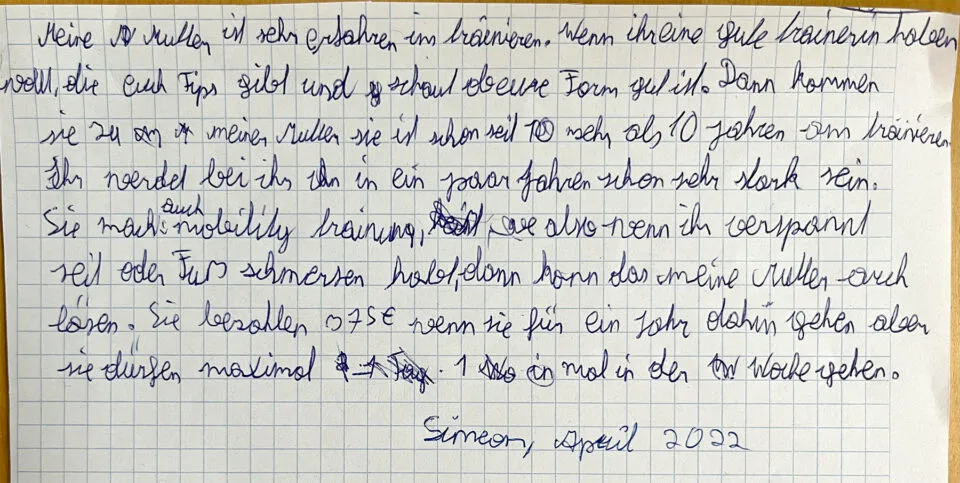 Meine Mutter ist sehr erfahren im träinieren. Wenn ihr eine gute träinerin haben
wollt, die euch Tips gibt und schaut ob eure Form gut ist. Dann kommen
sie zu meiner Mutter sie ist schon seit mehr als 10 Jahren am träinieren
Ihr werdet bei ihr in ein paar Jahren schon sehr stark sein.
Sie macht auch mobility training, also wenn ihr verspannt
seit oder Fuß schmersen habt, dann kann das meine Mutter auch
lösen. Sie bezahlen 075€ wenn sie für ein Jahr dahin gehen aber
sie dürfen maximal 1 mal in der Woche gehen.
Simeon, April 2022